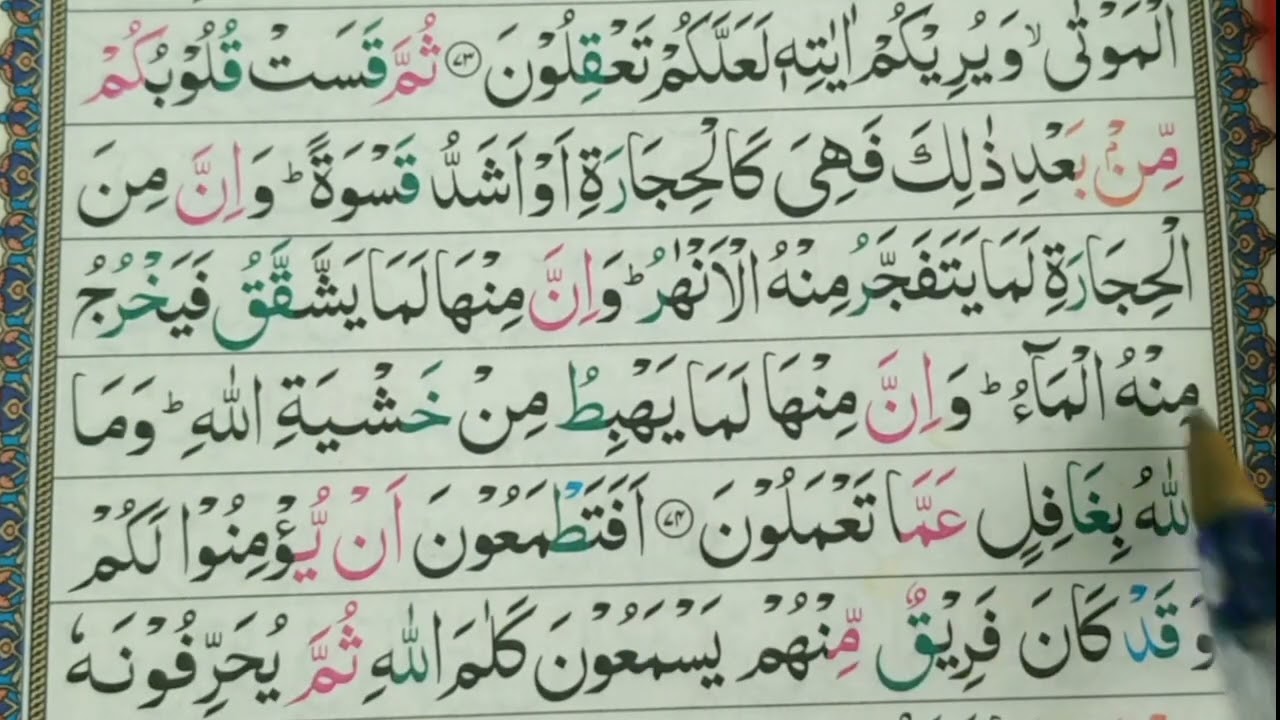 الْمَوْتٰى ۙ وَيُرِيْكُمْ اٰيٰتِهٖ لَعَلَّكُمْ تَعْقِلُوْنَ ﴿۷۳﴾ ثُمَّ قَسَتْ قُلُوْبُكُمْ
مِّنْۢ بَعْدِ ذٰلِكَ فَهِىَ كَالْحِجَارَةِ اَوْ اَشَدُّ قَسْوَةً ؕ وَاِنَّ مِنَ
الْحِجَارَةِ لَمَا يَتَفَجَّرُ مِنْهُ الْاَنْهٰرُ ؕ وَاِنَّ مِنْهَا لَمَا يَشَّقَّقُ فَيَخْرُجُ
مِنْهُ الْمَآءُ ؕ وَاِنَّ مِنْهَا لَمَا يَهْبِطُ مِنْ خَشْيَةِ اللّٰهِ ؕ وَمَا
اللّٰهُ بِغَافِلٍ عَمَّا تَعْمَلُوْنَ ﴿۷۴﴾ اَفَتَطْمَعُوْنَ اَنْ يُّؤْمِنُوْا لَكُمْ
وَقَدْ كَانَ فَرِيْقٌ مِّنْهُمْ يَسْمَعُوْنَ كَلٰمَ اللّٰهِ ثُمَّ يُحَرِّفُوْنَهٗ